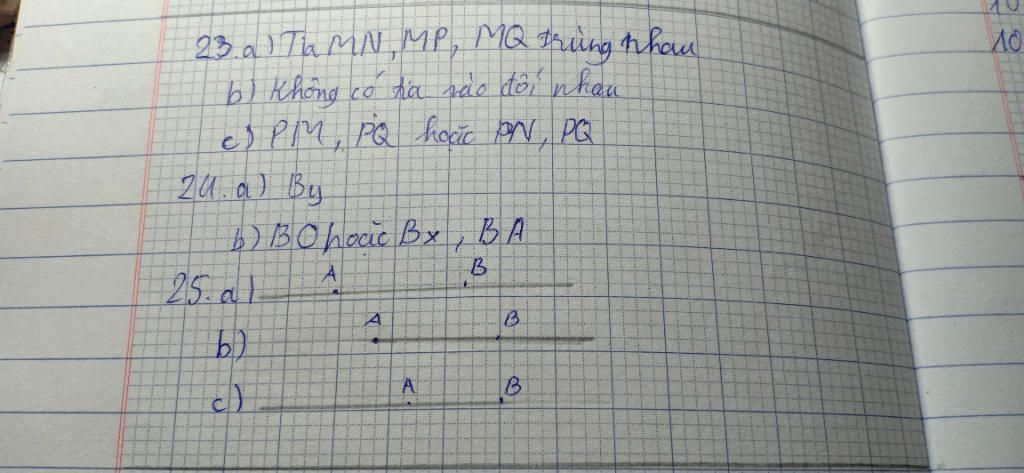 23. a) Tia MN, MP, MQ trùng nhau
b) Không có tia nào đối nhau
c) PM, PQ hoặc PN, PQ
24. a) By
b) BO hoặc Bx, BA
25. a) A B
b) A B
c) A B
10
10